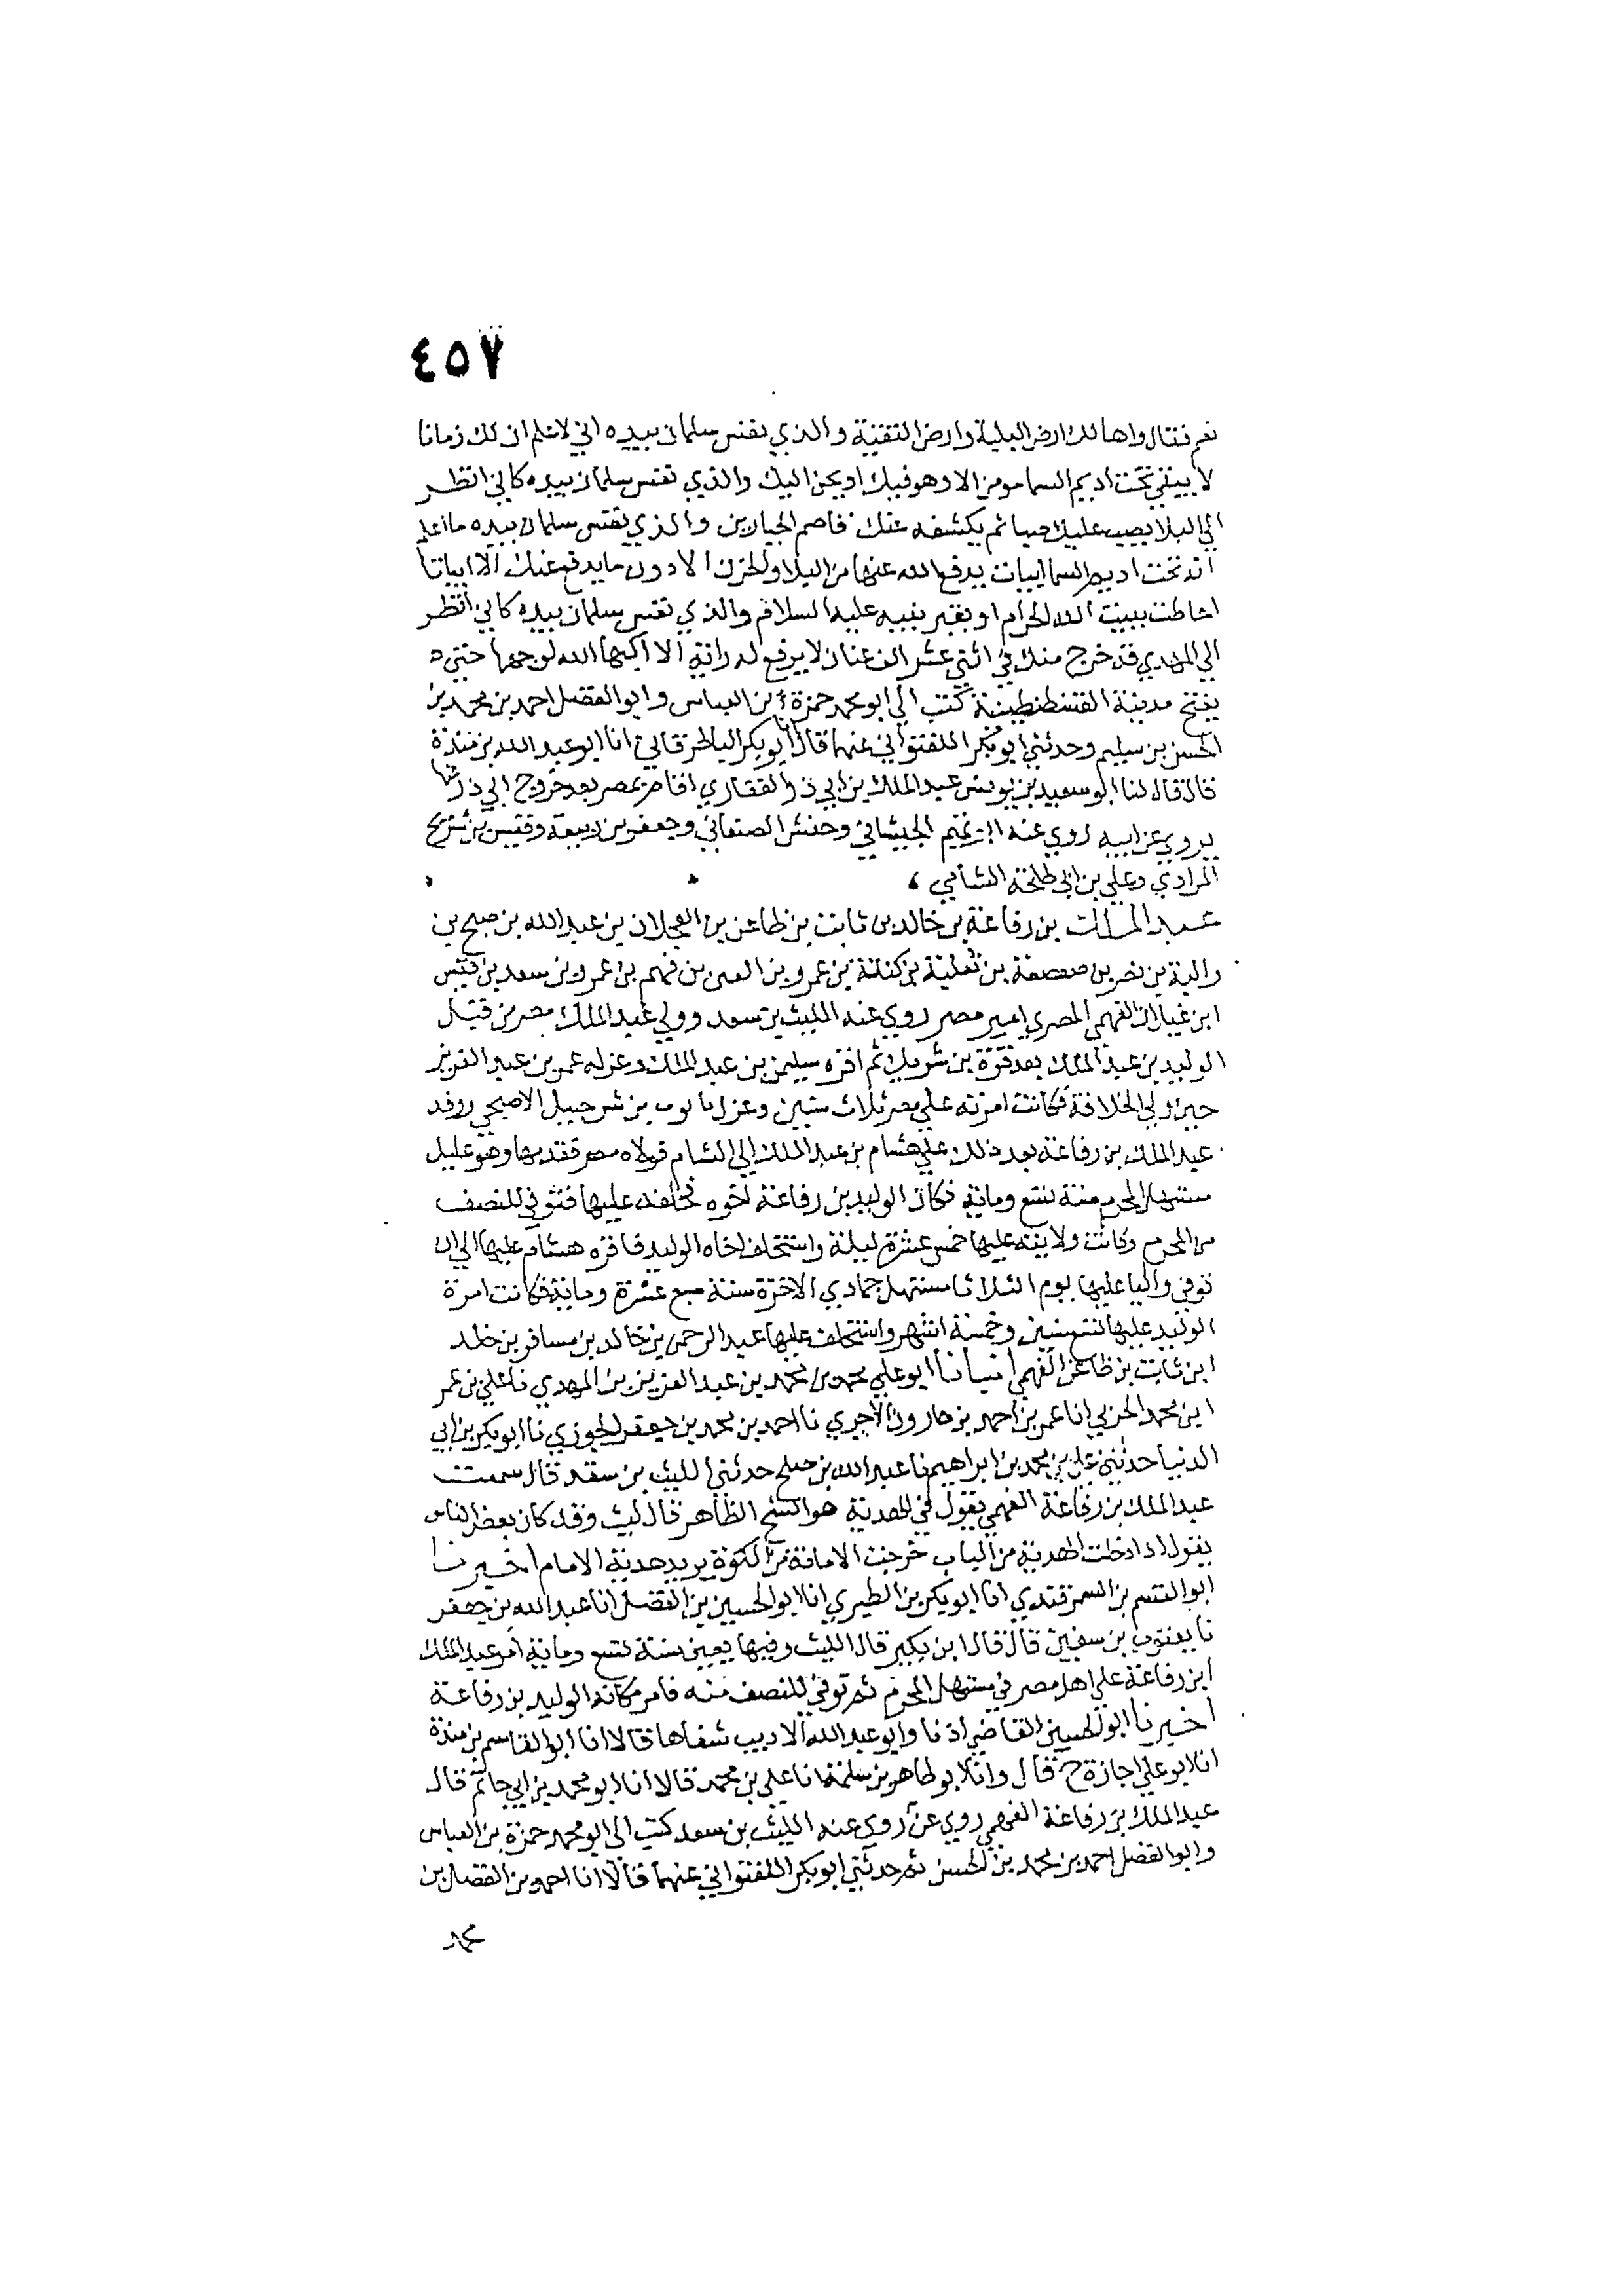 ٤٥٧
نعم فقال واها لك ارض البلية وارض التقية والذي نفس سلمان بيده اني لاعلم ان لك زمانا
لا يبقي تحت اديم السما مومن الا وهو فيك او يحن اليك والذي نفس سلمان بيده كاني انظر
الي البلا يصب عليك صبا ثم يكشفه عنك قاصم الجبارين والذي نفس سلمان بيده ما اعلم
انه تحت اديم السما ابيات يدفع الله عنها من البلا والحزن الا دون ما يدفع عنك الا ابياتا
احاطت ببيت الله الحرام او بقبر نبيه عليه السلام والذي نفس سلمان بيده كاني انظر
الي المهدي قد خرج منك في اثني عشر الف عنان لا يرفع له راية الا اكبها الله لوجهها حتي
يفتح مدينة القسطنطينية كتب الي ابو محمد حمزة بن العباس وابو الفضل احمد بن محمد بن
الحسن بن سليم وحدثني ابو بكر اللفتواني عنهما قالا انا ابو بكر الباطرقاني انا ابو عبد الله بن مندة
قال قال لنا ابو سعيد بن يونس عبد الملك بن ابي ذر الغفاري اقام بمصر بعد خروج ابي ذر منها
يروي عن ابيه روي عنه ابو تميم الجيشاني وحنش الصنعاني وجعفر بن ربيعة وقيس بن شريح
المرادي وعلي بن ابي طلحة الشامي
عبد الملك بن رفاعة بن خالد بن ثابت بن ظاعن بن العجلان بن عبد الله بن صبح بن
والبة بن نصر بن صعصعة بن ثعلبة بن كنانة بن عمرو بن القين بن فهم بن عمرو بن سعد بن قيس
ابن غيلان الفهمي المصري امير مصر روي عنه الليث بن سعد وولي عبد الملك مصر من قبل
الوليد بن عبد الملك بعد قرة بن شريك ثم اقره سليمن بن عبد الملك وعزله عمر بن عبد العزيز
حين ولي الخلافة فكانت امرته علي مصر ثلاث سنين وعزل بايوب بن شرحبيل الاصبحي ووفد
عبد الملك بن رفاعة بعد ذلك علي هشام بن عبد الملك الي الشام فولاه مصر فقدمها وهو عليل
مستهل المحرم سنة تسع وماية فكان الوليد بن رفاعة اخوه تخلفه عليها فتوفي للنصف
من المحرم وكانت ولايته عليها خمس عشرة ليلة واستخلف اخاه الوليد فاقره هشام عليها الي ان
توفي واليا عليها يوم الثلاثا مستهل جمادي الاخرة سنة سبع عشرة وماية فكانت امرة
الوليد عليها تسع سنين وخمسة اشهر واستخلف عليها عبد الرحمن بن خالد بن مسافر بن خلد
ابن ثابت بن ظاعن الفهمي انبانا ابو علي محمد بن محمد بن عبد العزيز بن المهدي نا علي بن عمر
ابن محمد الحربي انا عمر بن احمد بن هارون الاجري نا احمد بن محمد بن جعفر الجوزي نا ابو بكر بن ابي
الدنيا حدثني علي بن محمد بن ابراهيم نا عبد الله بن صلح حدثني الليث بن سعد قال سمعت
عبد الملك بن رفاعة الفهمي يقول في الهدية هو السحر الظاهر قال ليث وقد كان بعض الناس
يقول اذا دخلت الهدية من الباب خرجت الامانة من الكوة يريد هدية الامام اخبرنا
ابو القسم بن السمرقندي انا ابو بكر بن الطبري انا ابو الحسين بن الفضل انا عبد الله بن جعفر
نا يعقوب بن سفين قال قال ابن بكير قال الليث وفيها يعني سنة تسع وماية امر عبد الملك
ابن رفاعة علي اهل مصر في مستهل المحرم ثم توفي للنصف منه فامر مكانه الوليد بن رفاعة
اخبرنا ابو الحسين القاضي اذنا وابو عبد الله الاديب شفاها قالا انا ابو القاسم بن مندة
انا ابو علي اجازة ح قال وانا ابو طاهر بن سلمة انا علي بن محمد قالا انا ابو محمد بن ابي حاتم قال
عبد الملك بن رفاعة الفهمي روي عن روي عنه الليث بن سعد كتب الي ابو محمد حمزة بن العباس
وابو الفضل احمد بن محمد بن الحسن ثم حدثني ابو بكر اللفتواني عنهما قالا انا احمد بن الفضل بن
محمد